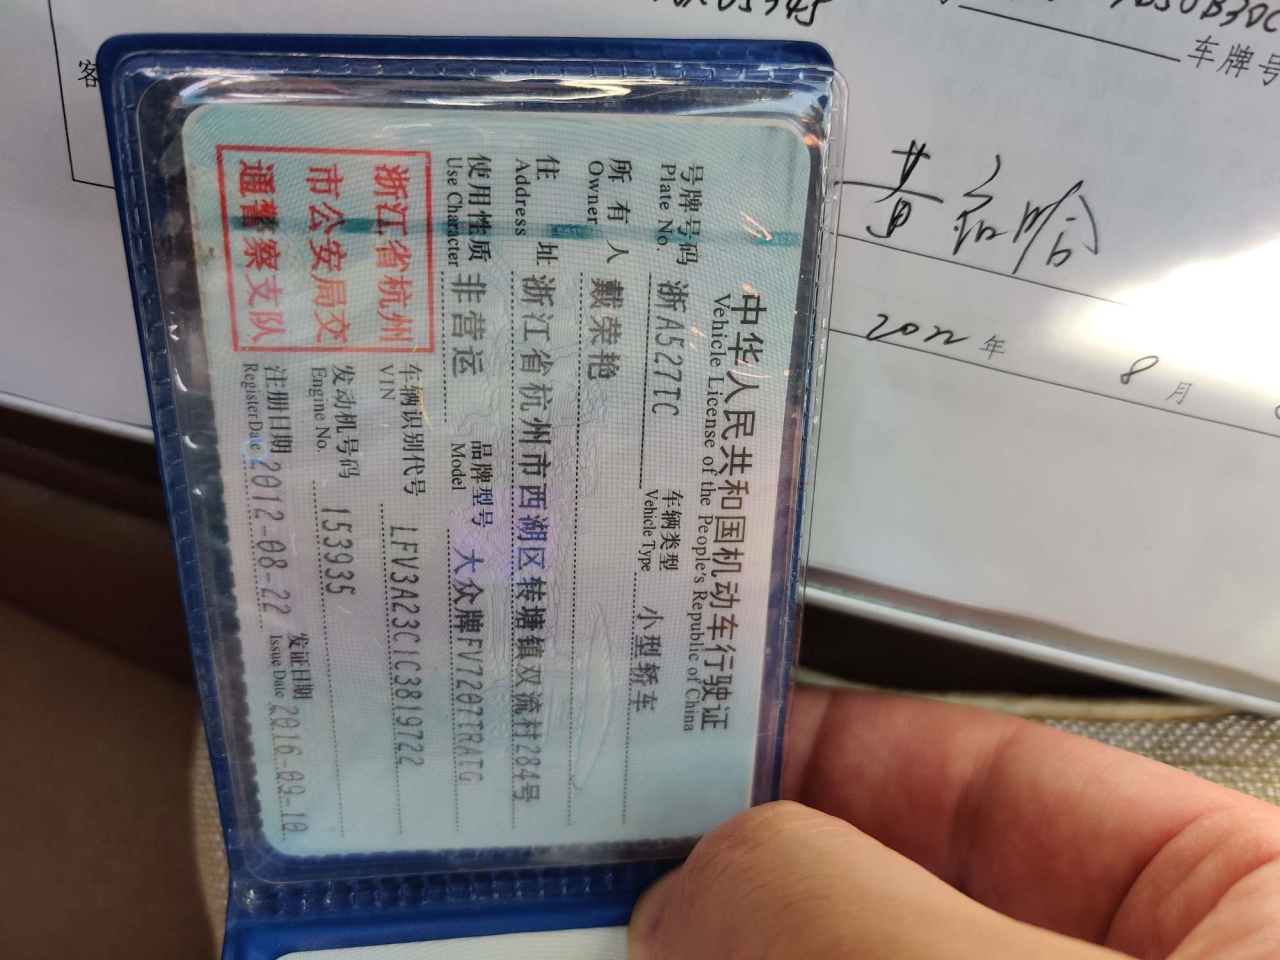 中华人民共和国机动车行驶证
Vehicle License of the People's Republic of China
号牌号码 浙A527TC 车辆类型 小型轿车
Plate No. Vehicle Type
所有人 戴荣艳
Owner
住址 浙江省杭州市西湖区转塘镇双流村284号
Address
使用性质 非营运 品牌型号 大众牌FV7207TRATG
Use Character Model
浙江省杭州
市公安局交
通警察支队
车辆识别代号 LFV3A23C1C3819722
VIN
发动机号码 153935
Engine No.
注册日期 2012-08-22 发证日期 2016-09-10
Register Date Issue Date
客
车牌号
2022年 8月